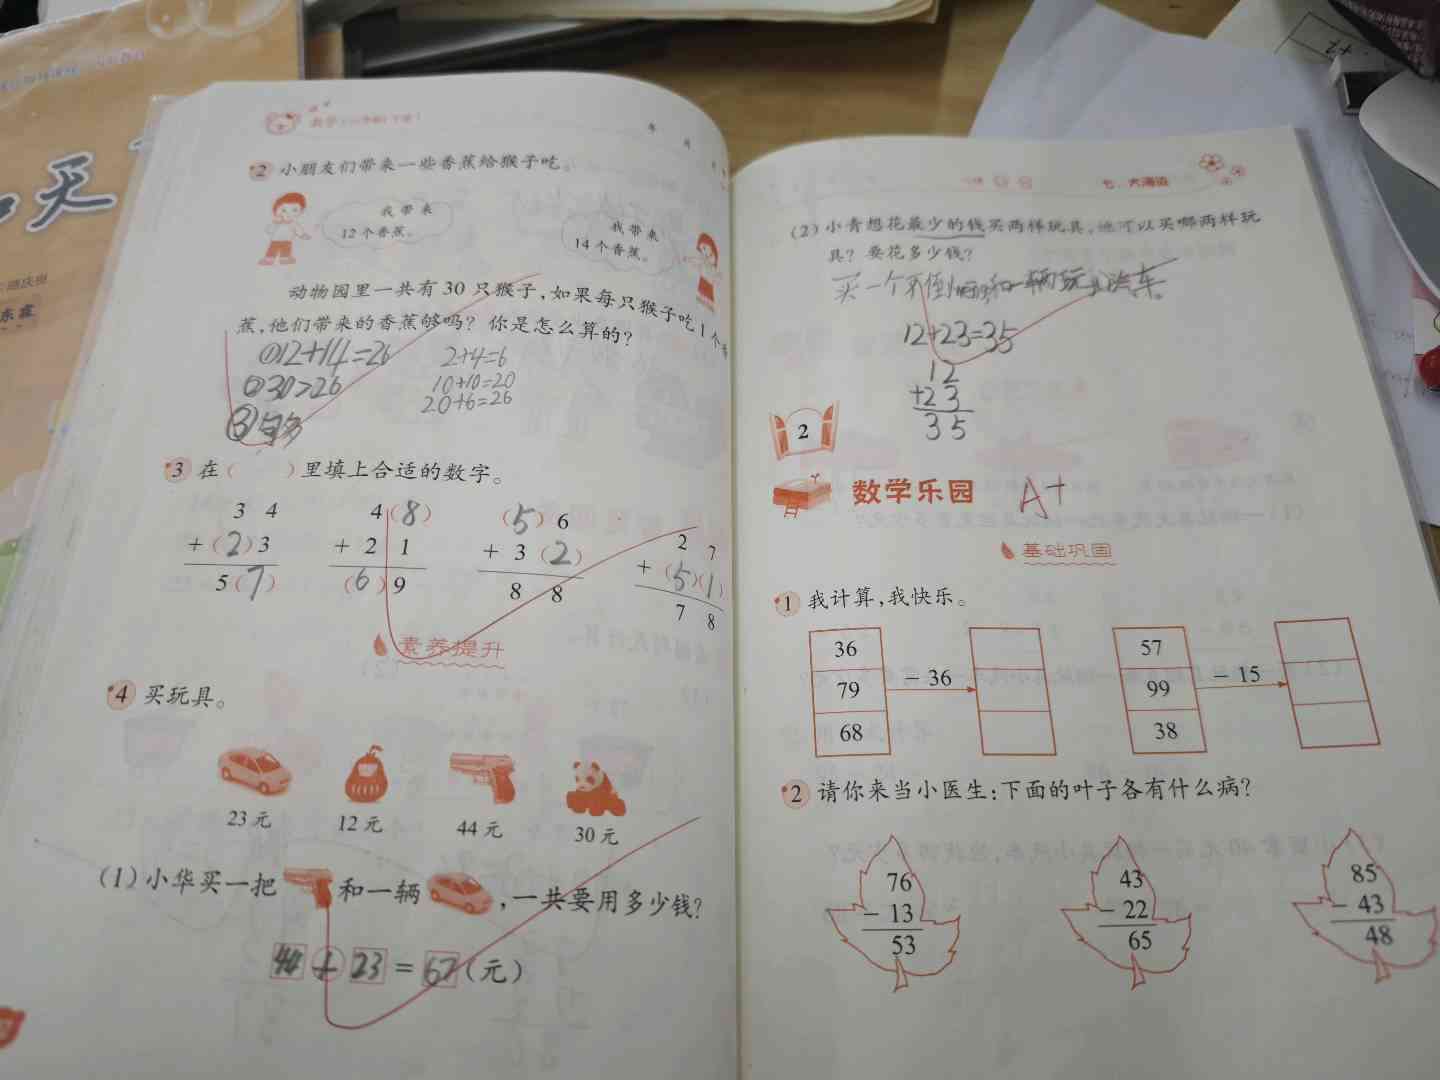 年 月
2 小朋友们带来一些香蕉给猴子吃。
我带来
12个香蕉。
我带来
14个香蕉。
动物园里一共有30只猴子,如果每只猴子吃1个香
蕉,他们带来的香蕉够吗?你是怎么算的?
①12+14=26 2+4=6
②30>26 10+10=20
③ 20+6=26
3 在( )里填上合适的数字。
3 4 4(8) (5)6 2 7
+(2)3 + 2 1 + 3(2) +(5)(1)
5(7) (6)9 8 8 7 8
素养提升
4 买玩具。
23元 12元 44元 30元
(1)小华买一把 和一辆 ,一共要用多少钱?
44+23=67(元)
七、大海边
(2)小青想花最少的钱买两样玩具,他可以买哪两样玩
具?要花多少钱?
买一个不倒翁和一辆玩具汽车。
12+23=35
12
+23
35
2
数学乐园 A+
基础巩固
1 我计算,我快乐。
36 57
79 -36 99 -15
68 38
2 请你来当小医生:下面的叶子各有什么病?
76 43 85
-13 -22 -43
53 65 48